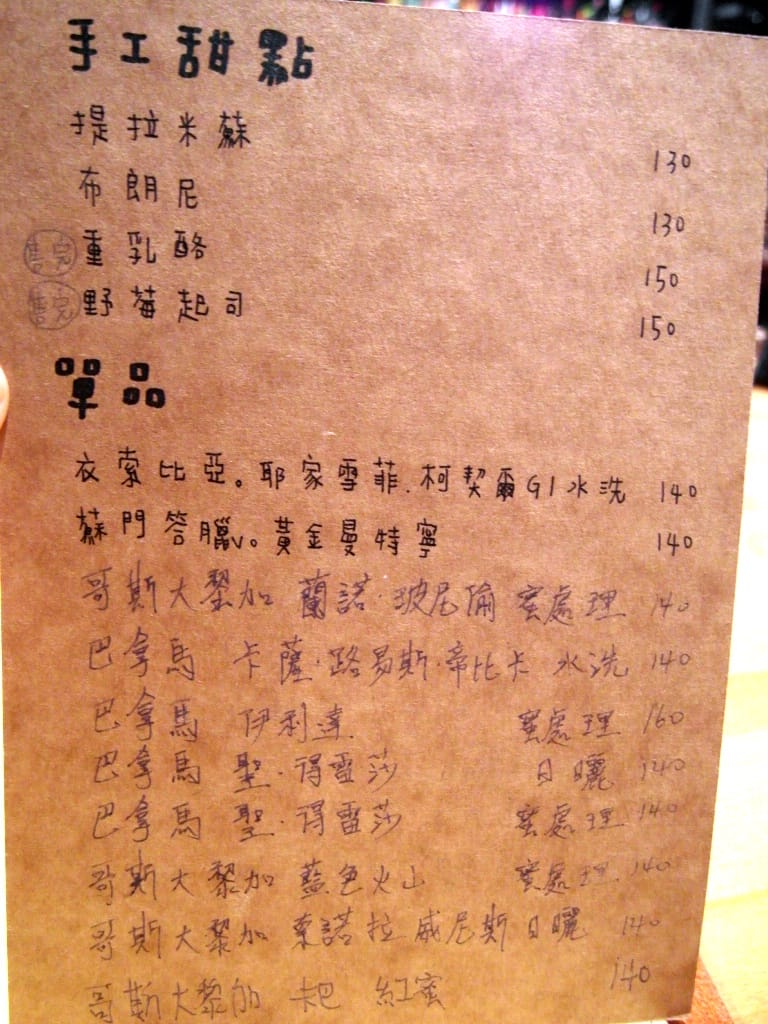 手工甜點
提拉米蘇 130
布朗尼 130
售完 重乳酪 150
售完 野莓起司 150
單品
衣索比亞。耶家雪菲.柯契爾G1水洗 140
蘇門答臘。黃金曼特寧 140
哥斯大黎加 蘭諾·玻尼倫 蜜處理 140
巴拿馬 卡薩·路易斯·帝比卡 水洗 140
巴拿馬 伊利達 蜜處理 160
巴拿馬 聖·得雷莎 日曬 140
巴拿馬 聖·得雷莎 蜜處理 140
哥斯大黎加 藍色火山 蜜處理 140
哥斯大黎加 東諾拉 威尼斯 日曬 140
哥斯大黎加 卡巴 紅蜜 140